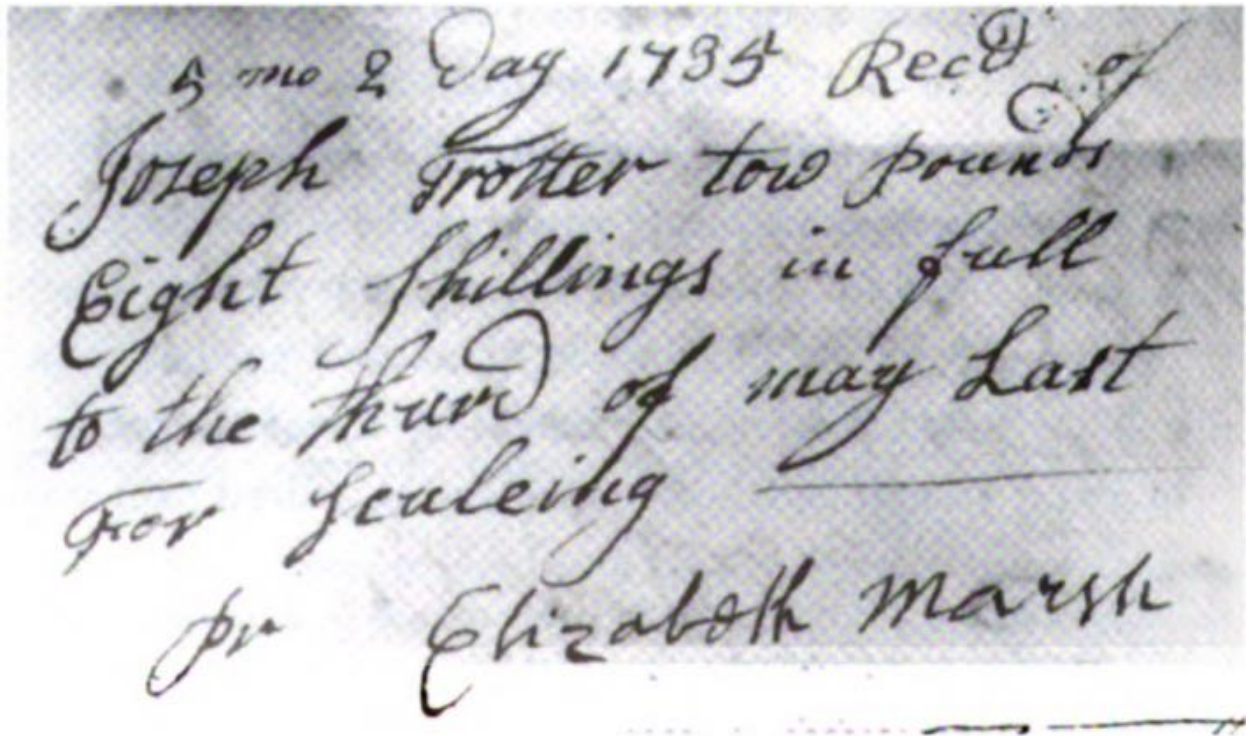 5 mo 2 Day 1735 Recd of
Joseph Trotter tow pounds
Eight shillings in full
to the thurd of may Last
For sculeing
pr Elizabeth Marsh